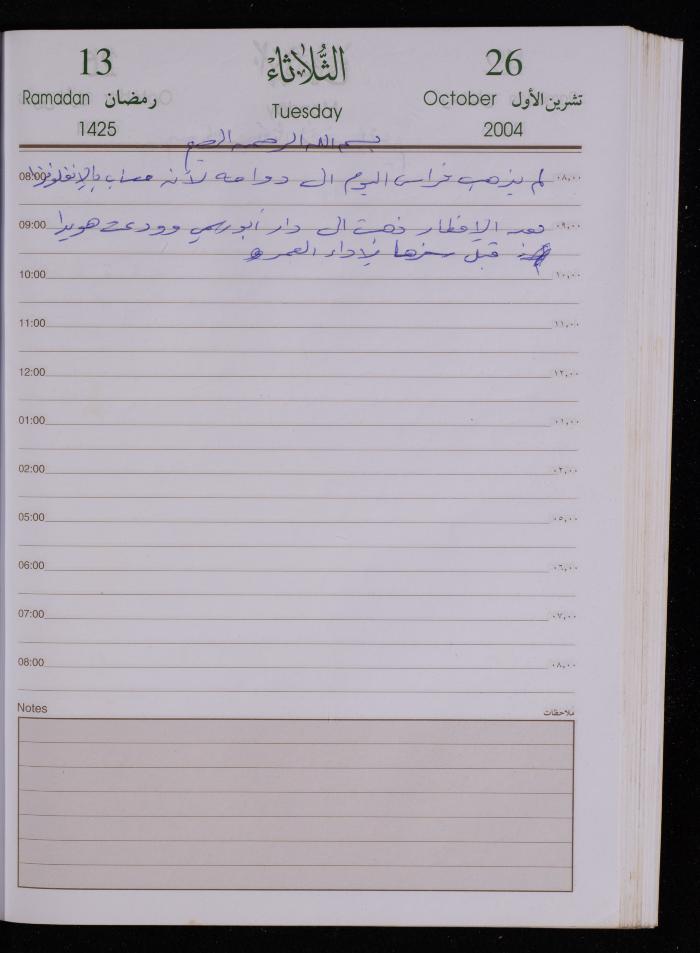 13 الثلاثاء 26
Ramadan رمضان Tuesday October تشرين الأول
1425 2004
بسم الله الرحمن الرحيم
08:00 لم يذهب فراس اليوم الى دوامه لأنه مصاب بالإنفلونزا ٠٨,٠٠
09:00 بعد الإفطار ذهبت الى دار أبو رسمي وودعت هويدا ٠٩,٠٠
قبل سفرها لأداء العمره
10:00 ١٠,٠٠
11:00 ١١,٠٠
12:00 ١٢,٠٠
01:00 ٠١,٠٠
02:00 ٠٢,٠٠
05:00 ٠٥,٠٠
06:00 ٠٦,٠٠
07:00 ٠٧,٠٠
08:00 ٠٨,٠٠
Notes ملاحظات